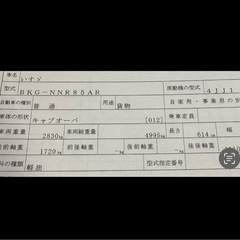 車名
いすゞ
型式 BKG-NNR85AR 原動機の型式 4JJ1
自動車の種別 普通 用途 貨物 自家用・事業用の別
車体の形状 キャブオーバ [012] 乗車定員
車両重量 2830kg 車両総重量 4995kg 長さ 614cm 幅
前前軸重 1720kg 前後軸重 -kg 後前軸重 -kg
料の種類 軽油 型式指定番号